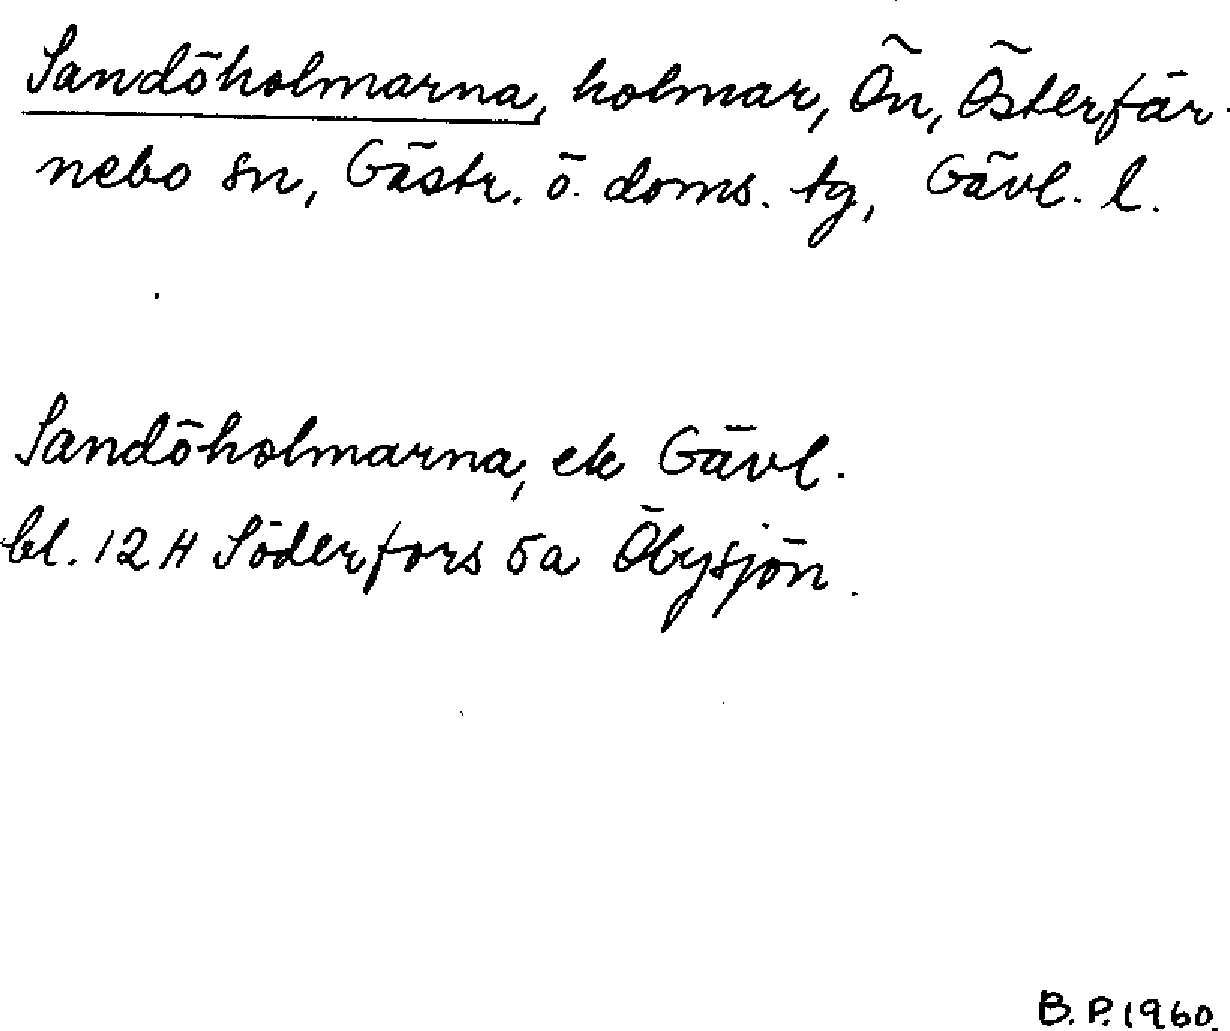 Sandöholmarna, holmar, Ön, Österfär-
nebo sn, Gästr. ö. doms. tg, Gävl. l.
Sandöholmarna, ek Gävl.
bl. 12 H Söderfors 5a Öbysjön.
B. P. 1960